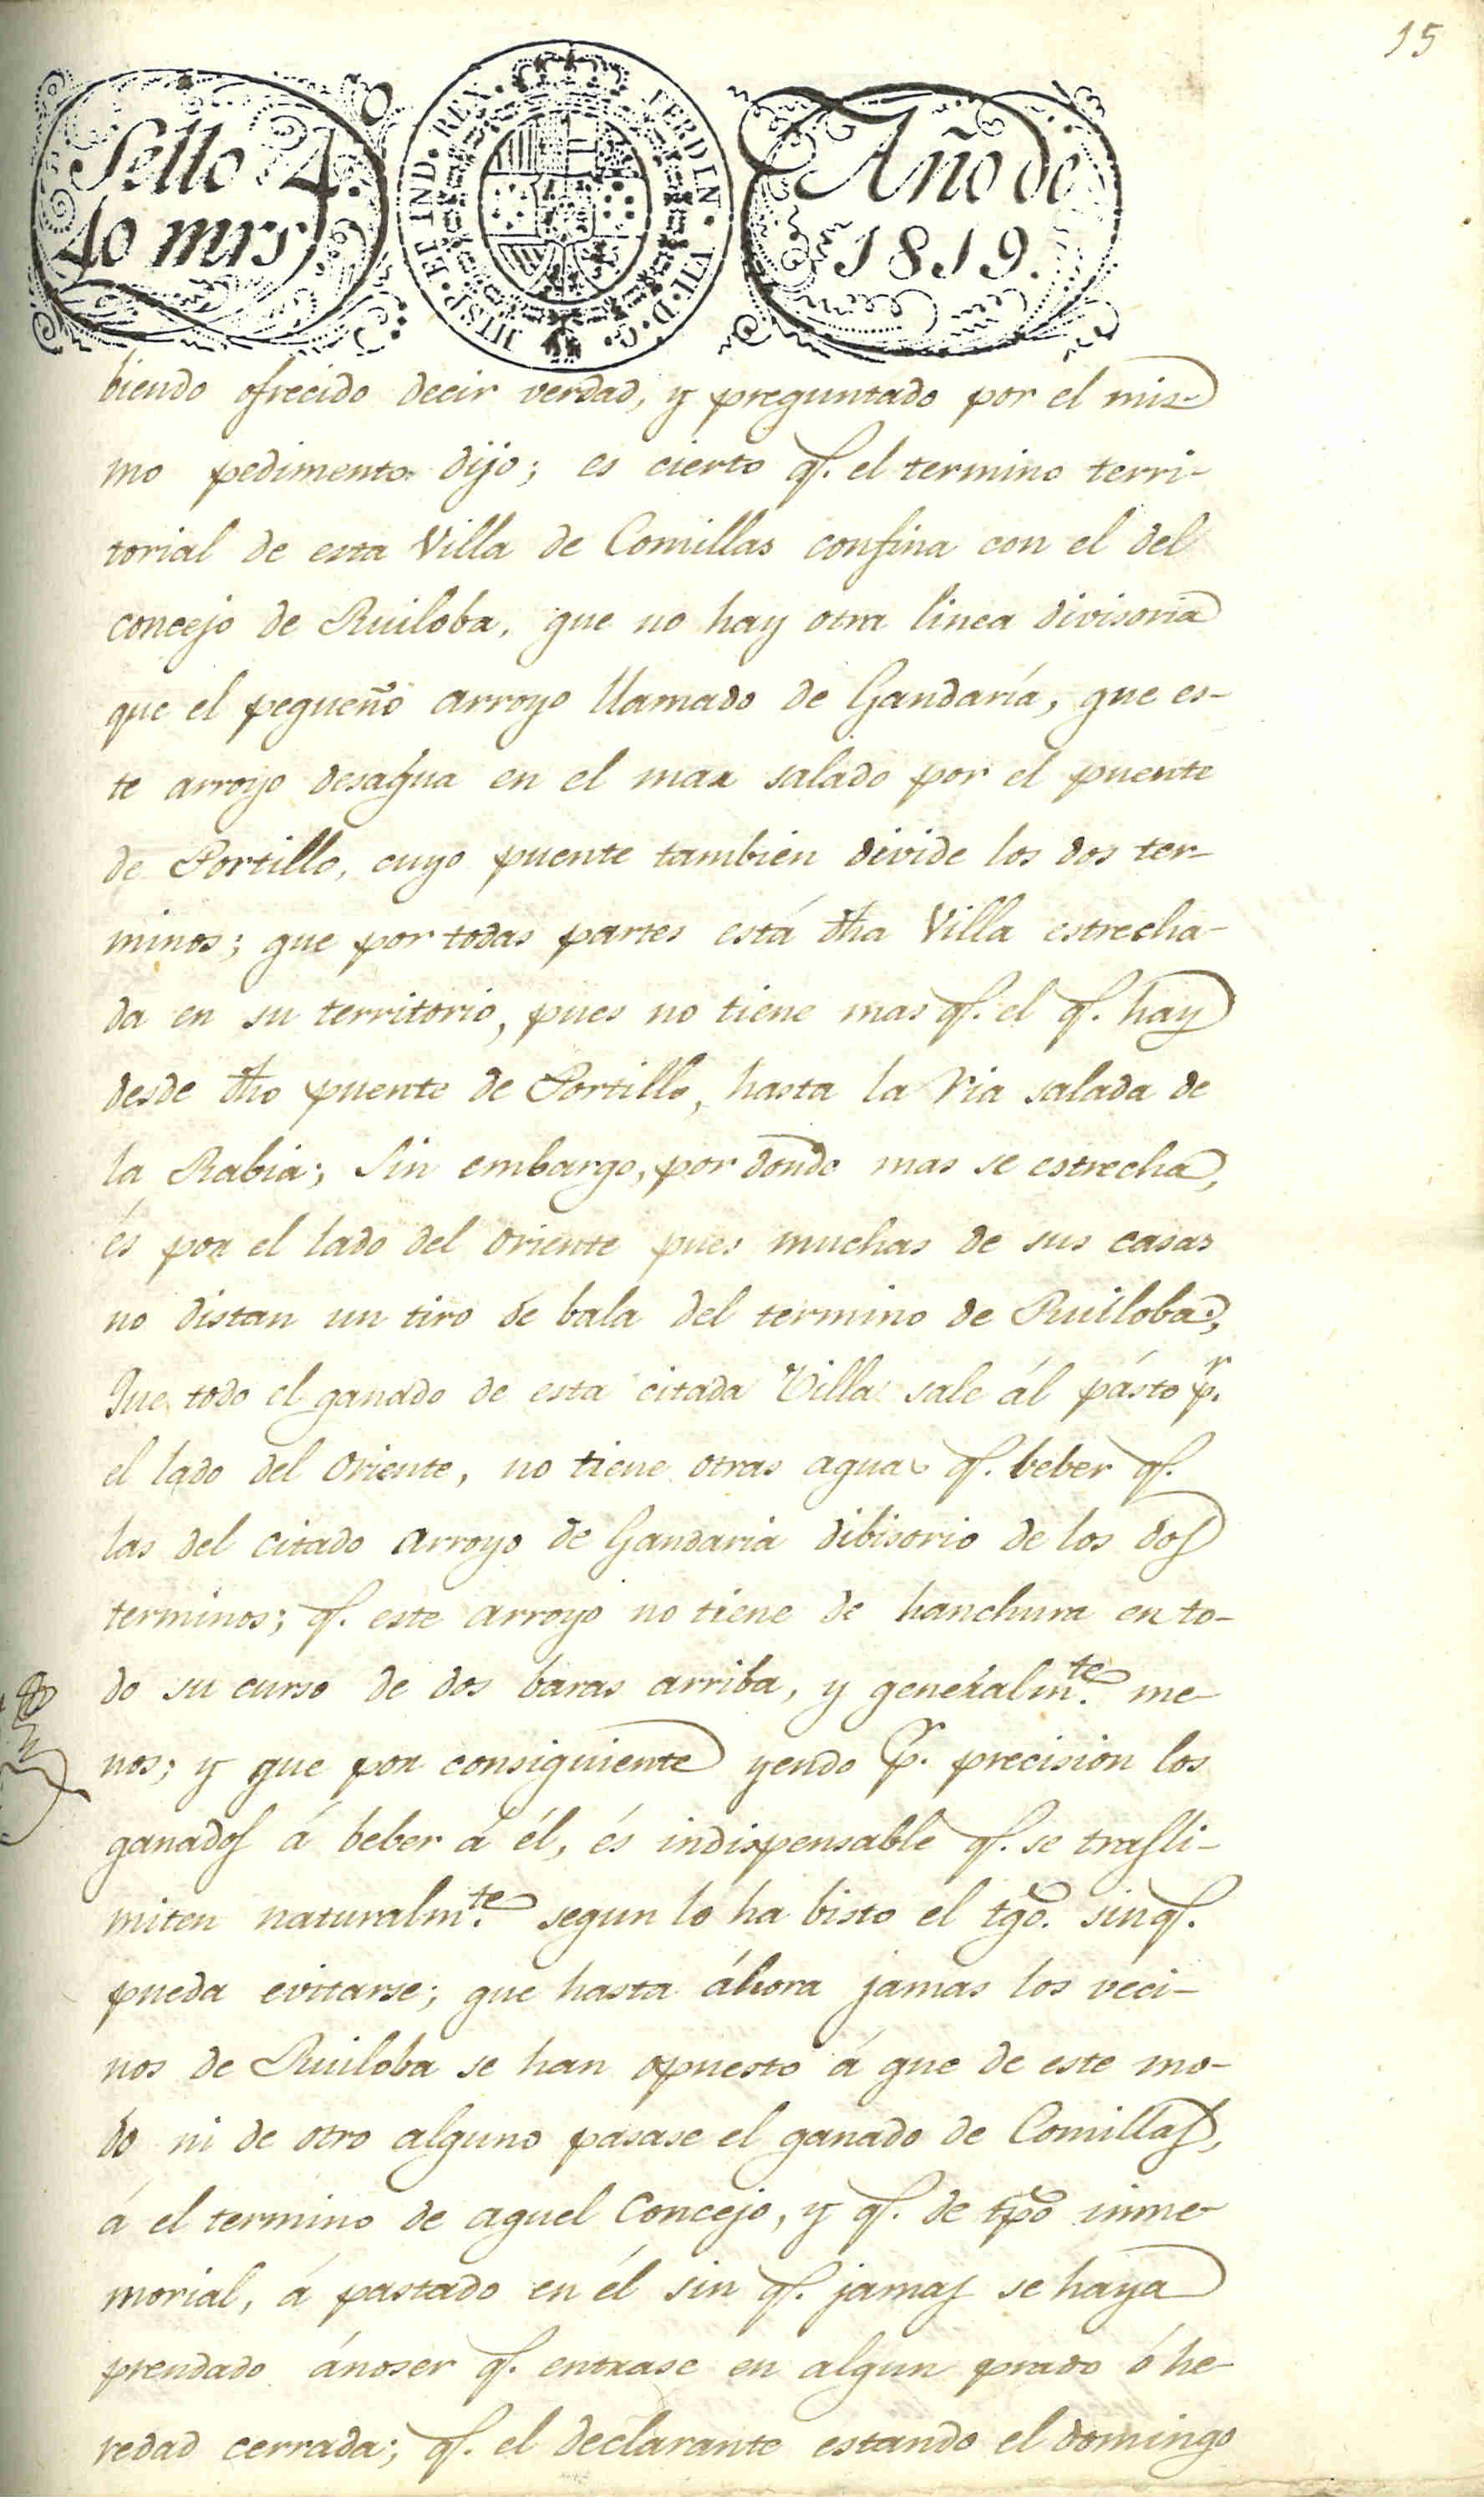 15
Sello 4.
40 mrs
HISP. ET IND. REX. FERDIN. VII. D. G.
Año de
1819.
biendo ofrecido decir verdad, y preguntado por el mis-
mo pedimento dijo; es cierto q.e el termino terri-
torial de esta Villa de Comillas confina con el del
concejo de Ruiloba, que no hay otra linea divisoria
que el pequeño arroyo llamado de Gandaría, que es-
te arroyo desagua en el mar salado por el puente
de Portillo, cuyo puente también divide los dos ter-
minos; que por todas partes está dha Villa estrecha-
da en su territorio, pues no tiene mas q.e el q.e hay
desde dho puente de Portillo, hasta la ria salada de
la Rabia; Sin embargo, por donde mas se estrecha,
és por el lado del oriente pues muchas de sus casas
no distan un tiro de bala del termino de Ruiloba,
Que todo el ganado de esta citada Villa sale ál pásto p.r
el lado del oriente, no tiene otras aguas q.e beber q.e
las del citado arroyo de Gandaria dibisorio de los dos
terminos; q.e este arroyo no tiene de hanchura en to-
do su curso de dos baras arriba, y generalm.te me-
nos; y que por consiguiente yendo p.r precision los
ganados á beber á él, és indispensable q.e se trasli-
miten naturalm.te segun lo ha bisto el tgo. sinq.e
pueda evitarse; que hasta áhora jamas los veci-
nos de Ruiloba se han opuesto á que de este mo-
do ni de otro alguno pasase el ganado de Comillas,
á el termino de aquel Concejo, y q.e de tpo inme-
morial, á pastado en él sin q.e jamas se haya
prendado ánoser q.e entrase en algun prado ó he-
redad cerrada; q.e el declarante estando el domingo